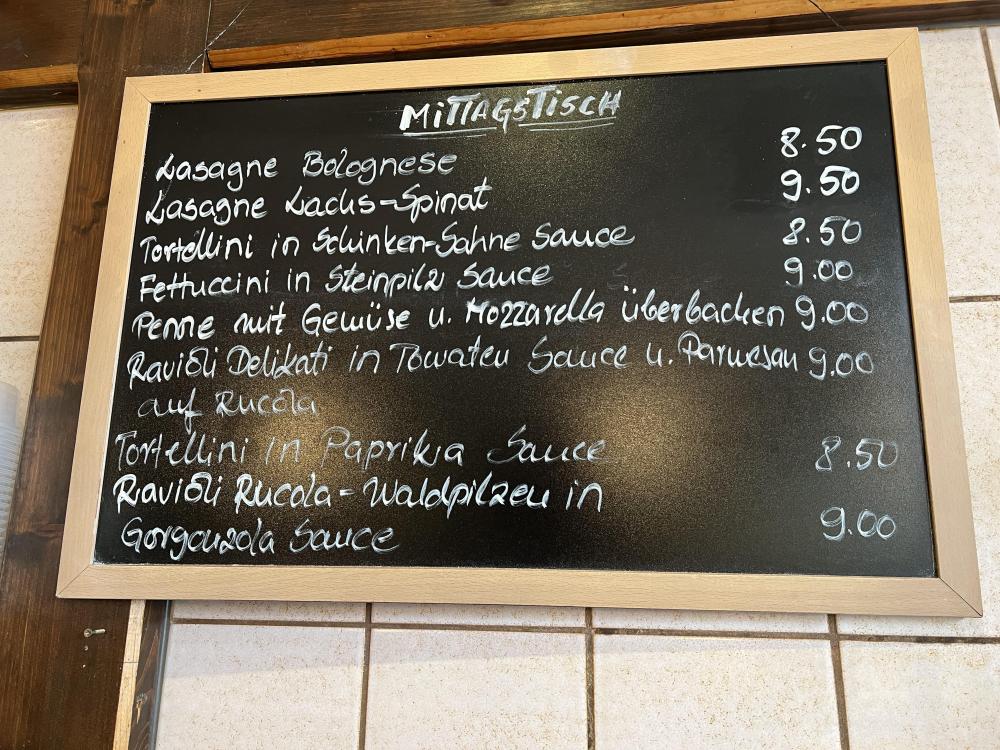 MITTAGSTISCH
Lasagne Bolognese 8.50
Lasagne Lachs-Spinat 9.50
Tortellini in Schinken-Sahne Sauce 8.50
Fettuccini in Steinpilz Sauce 9.00
Penne mit Gemüse u. Mozzarella überbacken 9.00
Ravioli Delikati in Tomaten Sauce u. Parmesan 9.00
auf Rucola
Tortellini in Paprika Sauce 8.50
Ravioli Rucola-Waldpilzen in
Gorgonzola Sauce 9.00